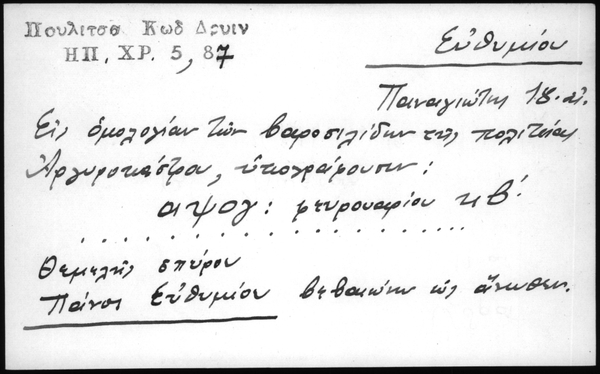 Πουλιτσα Κωδ Δρυιν
ΗΠ. ΧΡ. 5, 87
Εὐθυμίου
Παναγιώτης 18. αἰ.
Εἰς ὁμολογίαν τῶν βαροσιλίδων τῆς πολιτείας
Ἀργυροκάστρου, ὑπογράφουσιν:
αψογ: φευρουαρίου κβ΄
Θεμελῆς σπύρου
Πάνος Εὐθυμίου βεβαιώνω ὡς ἄνωθεν.